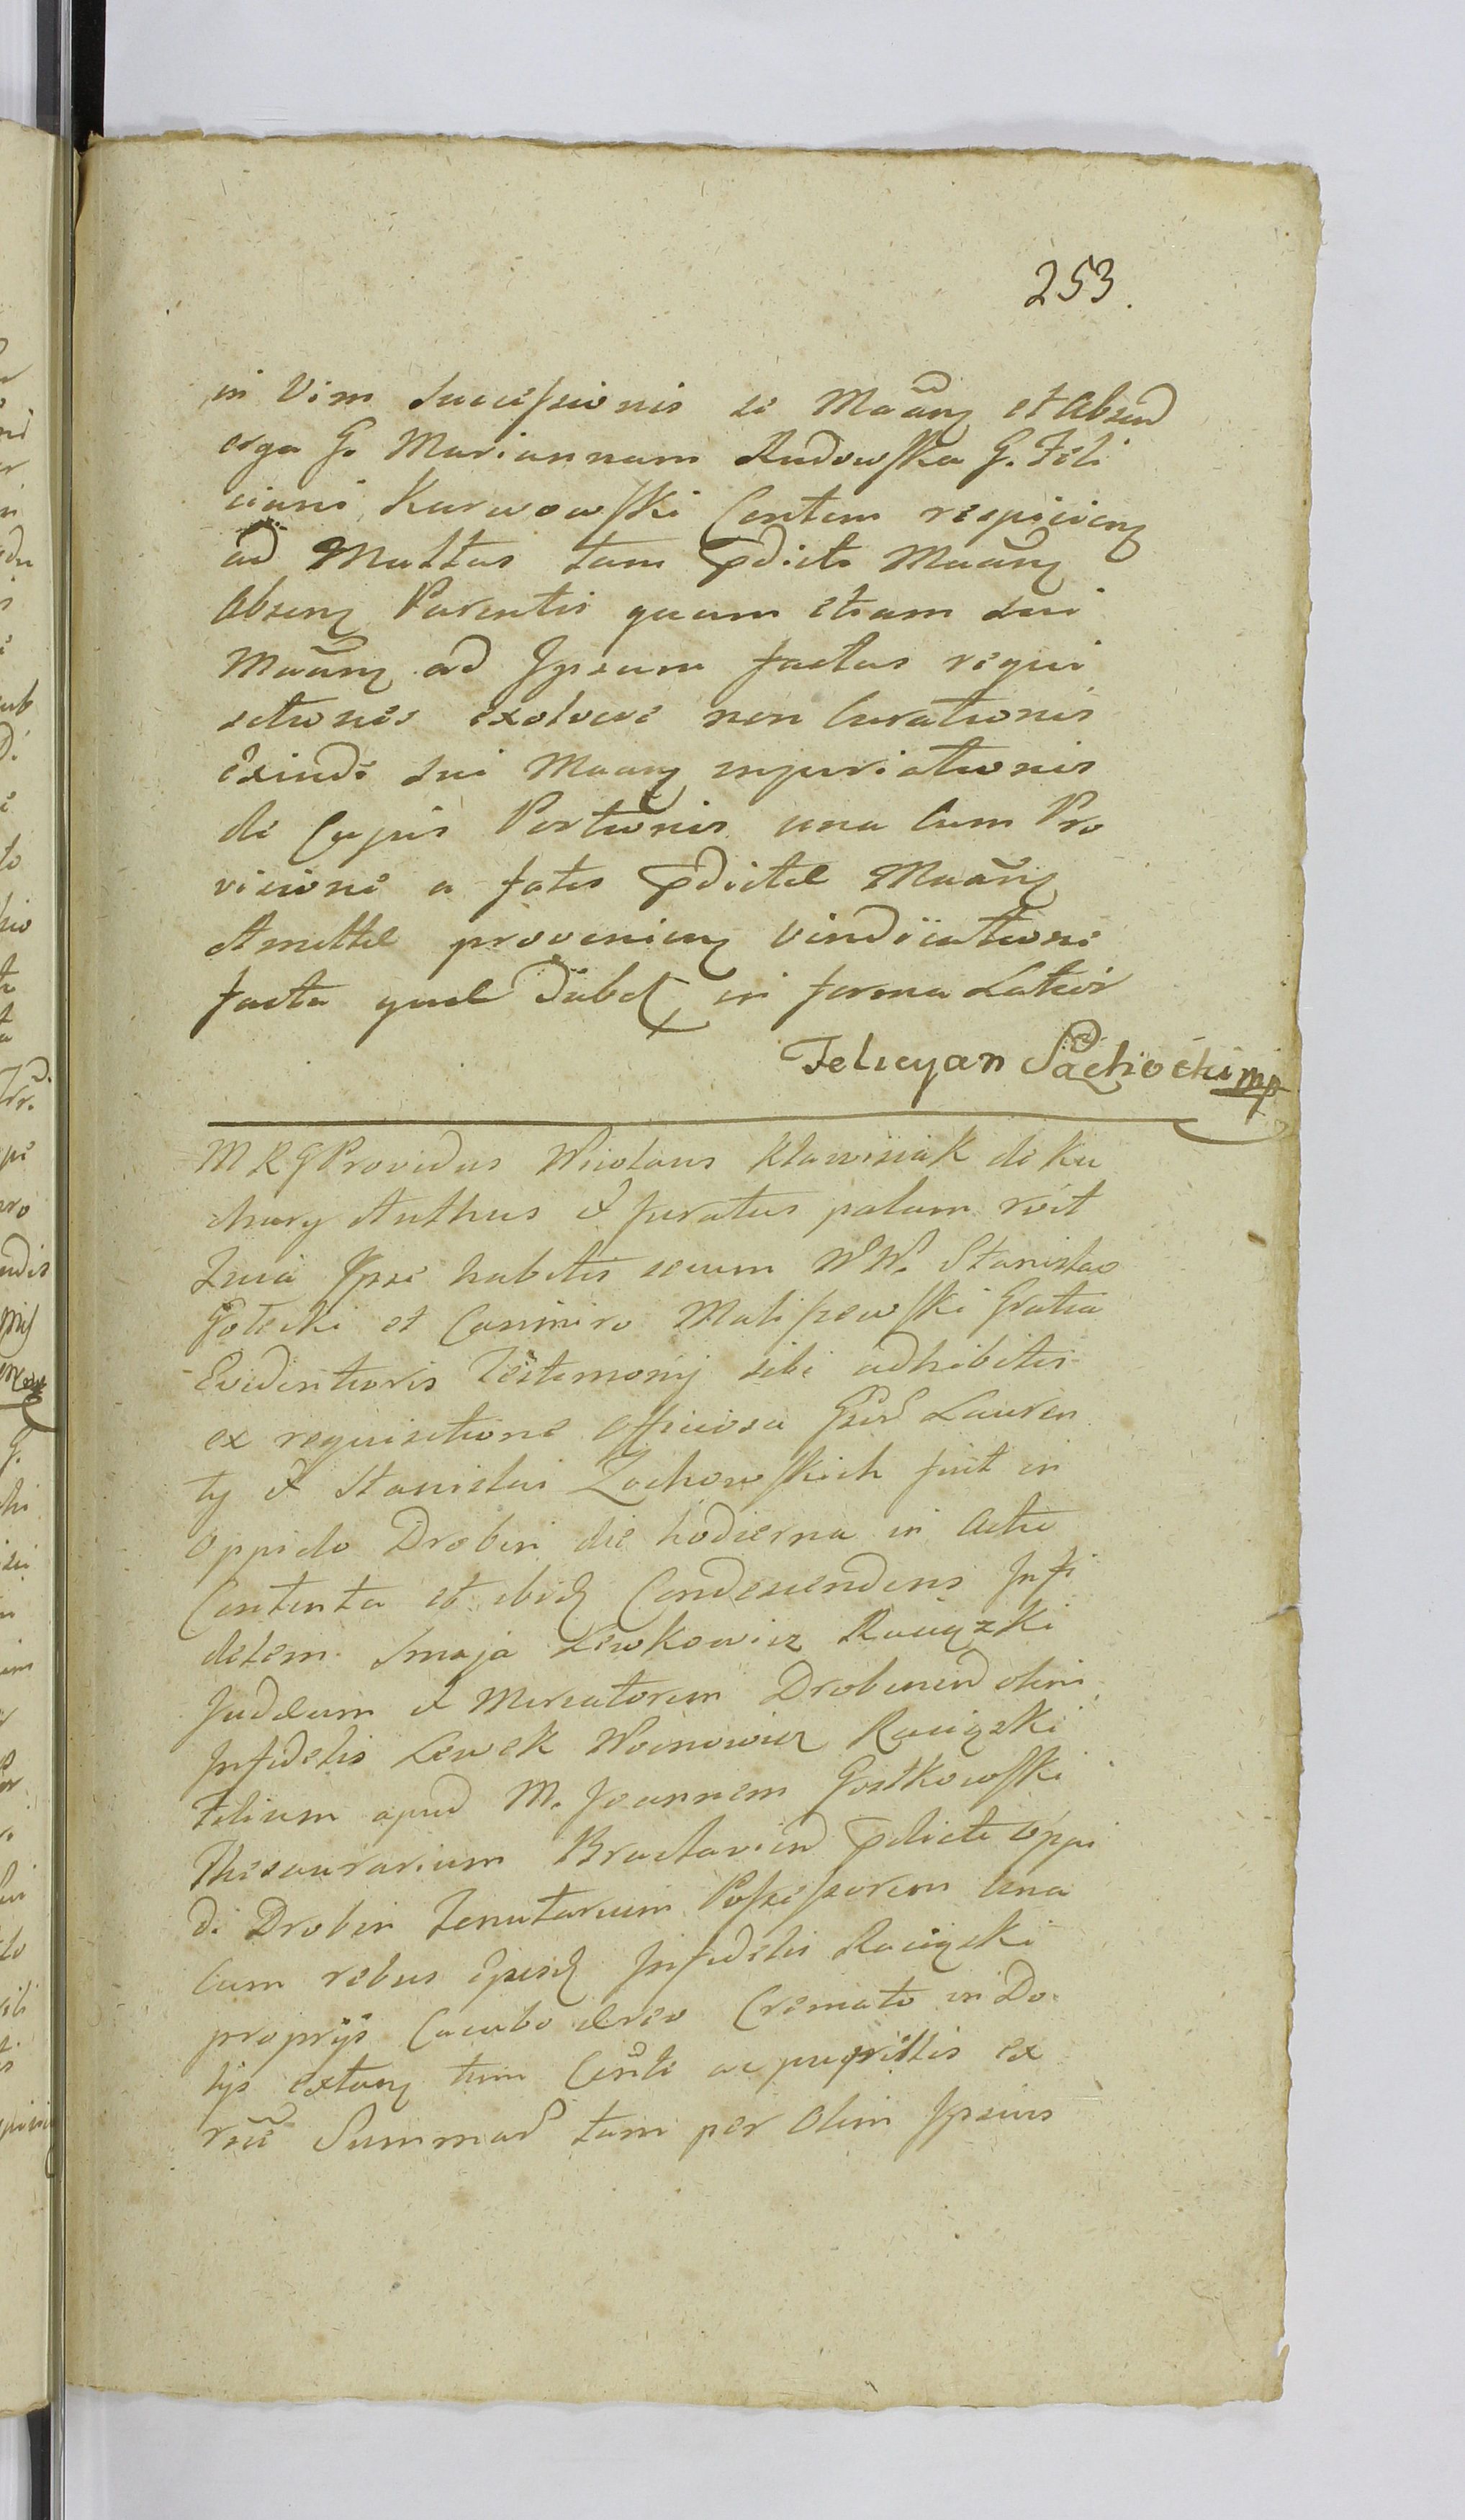 253.
in Vim Successionis se Maãn et Absen
erga G. Mariannam Rudowska G. Feli
ciani Karwowski Contem respicien
ad Multas tam pdicti Maãn
Absen Parentis quam etiam sui
Maãn ad Ipsum factas requi
sitiones exolvere non Curationis
Exinde sui Maãn injuriationis
de Cujus Portionis una Cum Pro
visione a fatis pdictæ Maãn
Amittæ provenien vindicatione
facta quæ Dabet in forma Latior
Felicyan Sachocki mp
M R G Providus Nicolaus Klawisiak de Ku
chary Authus & Juratus palam rŏit
Quia Ipse habitis secum WW. Stanislao
Golecki et Casimiro Maliszewski Gratia
Evidentioris Testimonij sibi adhibitis
ex requisitione officiosa Gserd Lauren
ty & Stanislai Zochowskich fuit in
Oppido Drobin die hodierna in Actu
Contenta et ibid Condescendens Infi
delem Smaja Lewkowicz Raciązki
Judæum & Mercatorem Drobinen olim
Infidelis Lewek Woinowicz Raciązki
Filium apud M. Joannem Gostkowski
Thesaurarium Braclavien pdicti Oppi
di Drobin Tenutarium Possessorem Una
Cum rebus Ejusd Infidelis Raciązki
proprijs Cacabo æreo Cremato in Do
lijs extan tum ac ex
Summad tam per Olim Ipsius